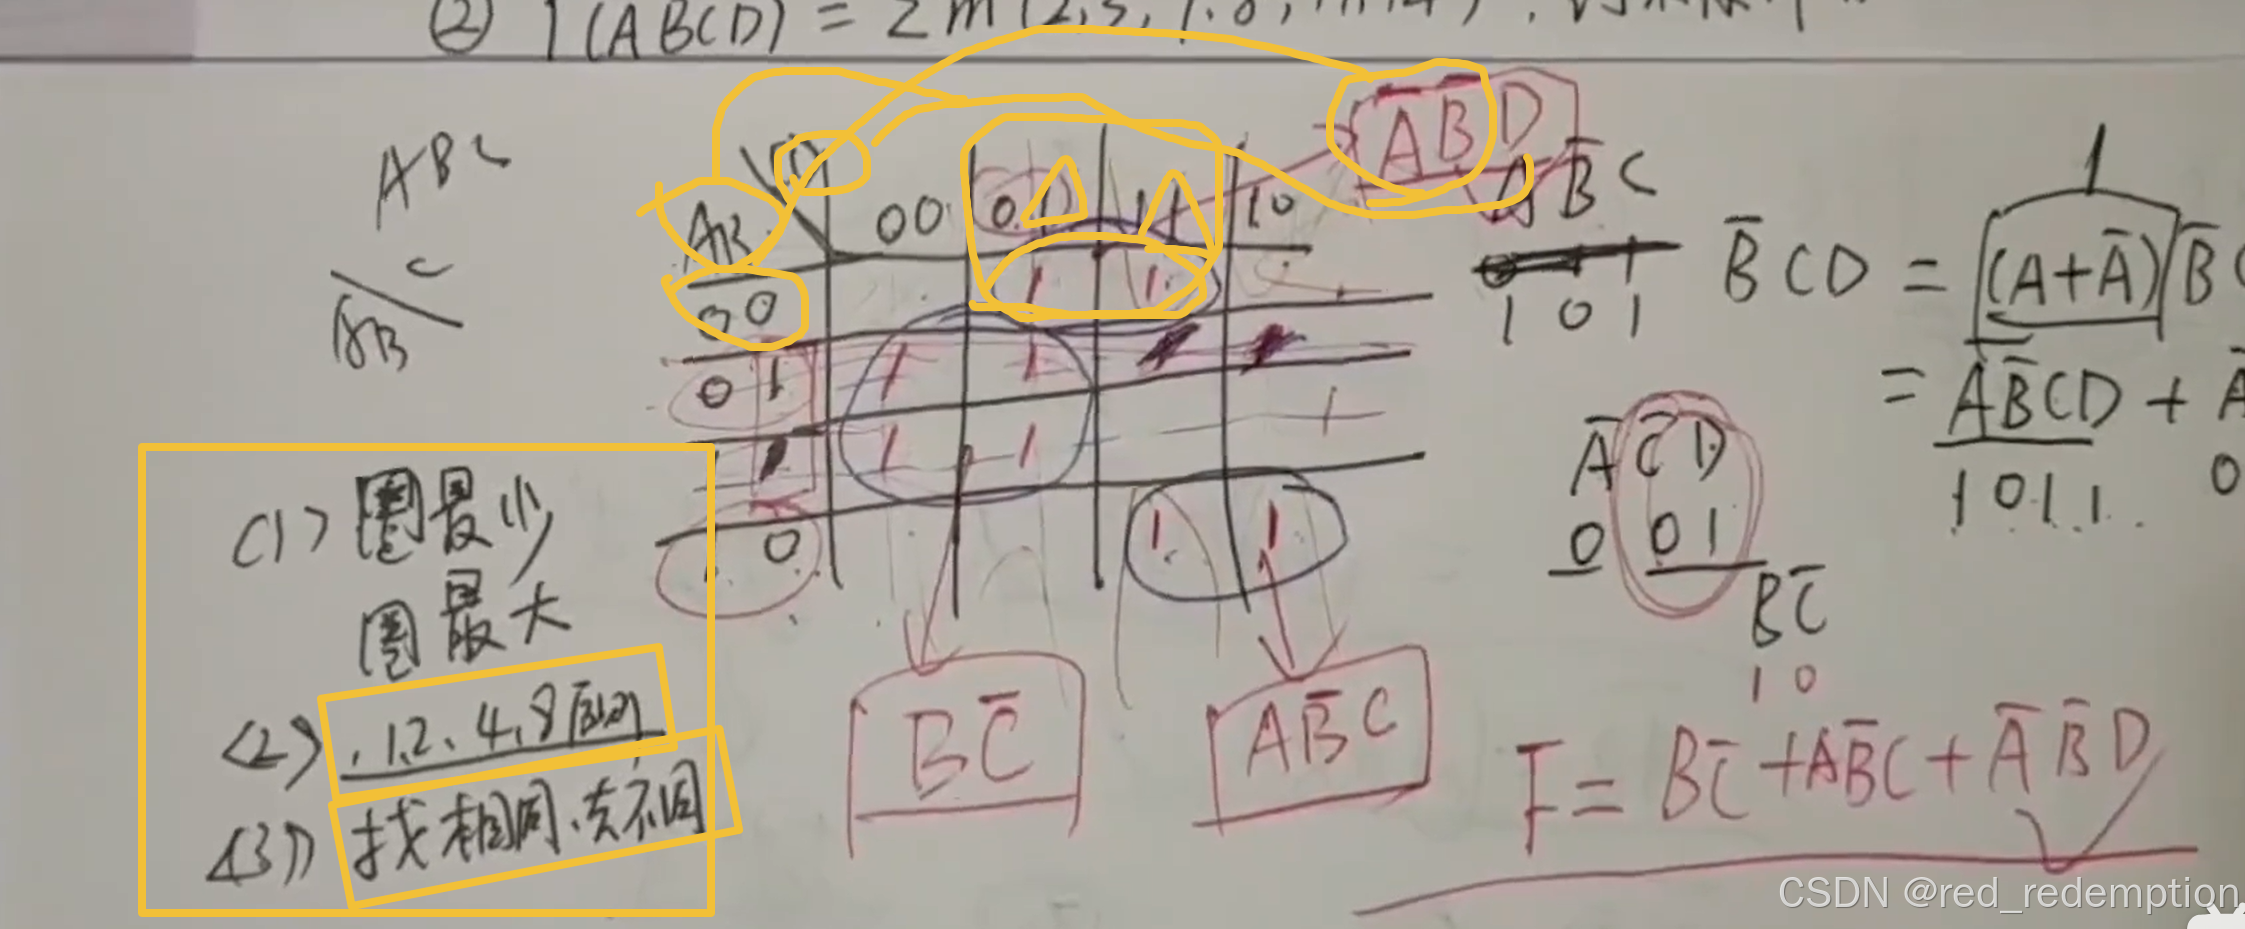 ② F(ABCD) = Σm(
ABC
C
AB
AB
00 01 11 10
00 1 1
01 1 1
1 1
0 1 1
A̅B̅D
AB̅C
101
B̅CD = (A+A̅)B̅C
1
= AB̅CD + A̅
1011 0
A̅C̅D
0 01
BC̅
10
(1) 圈最少
圈最大
(2) 1.2、4、8
(3) 找相同、去不同
BC̅
AB̅C
F = BC̅+AB̅C+A̅B̅D
CSDN @red_redemption